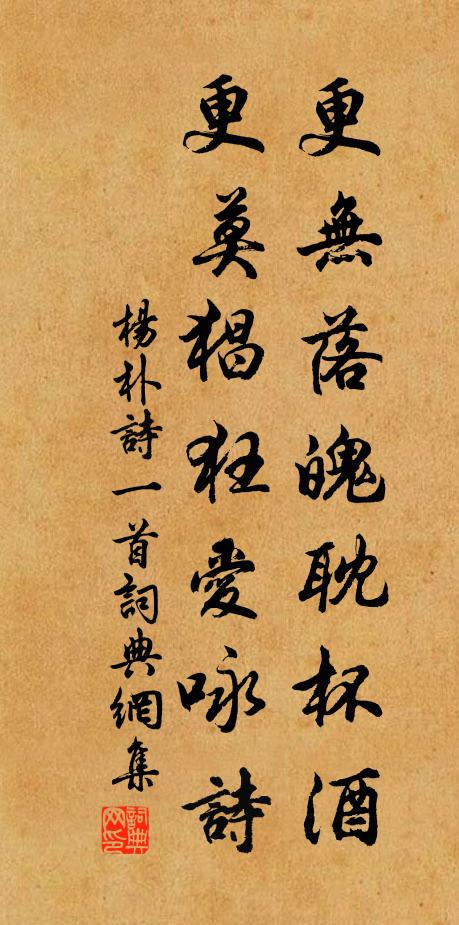 更無落魄耽杯酒
更莫猖狂愛咏詩
楊朴詩一首詞典網集
詞典网印